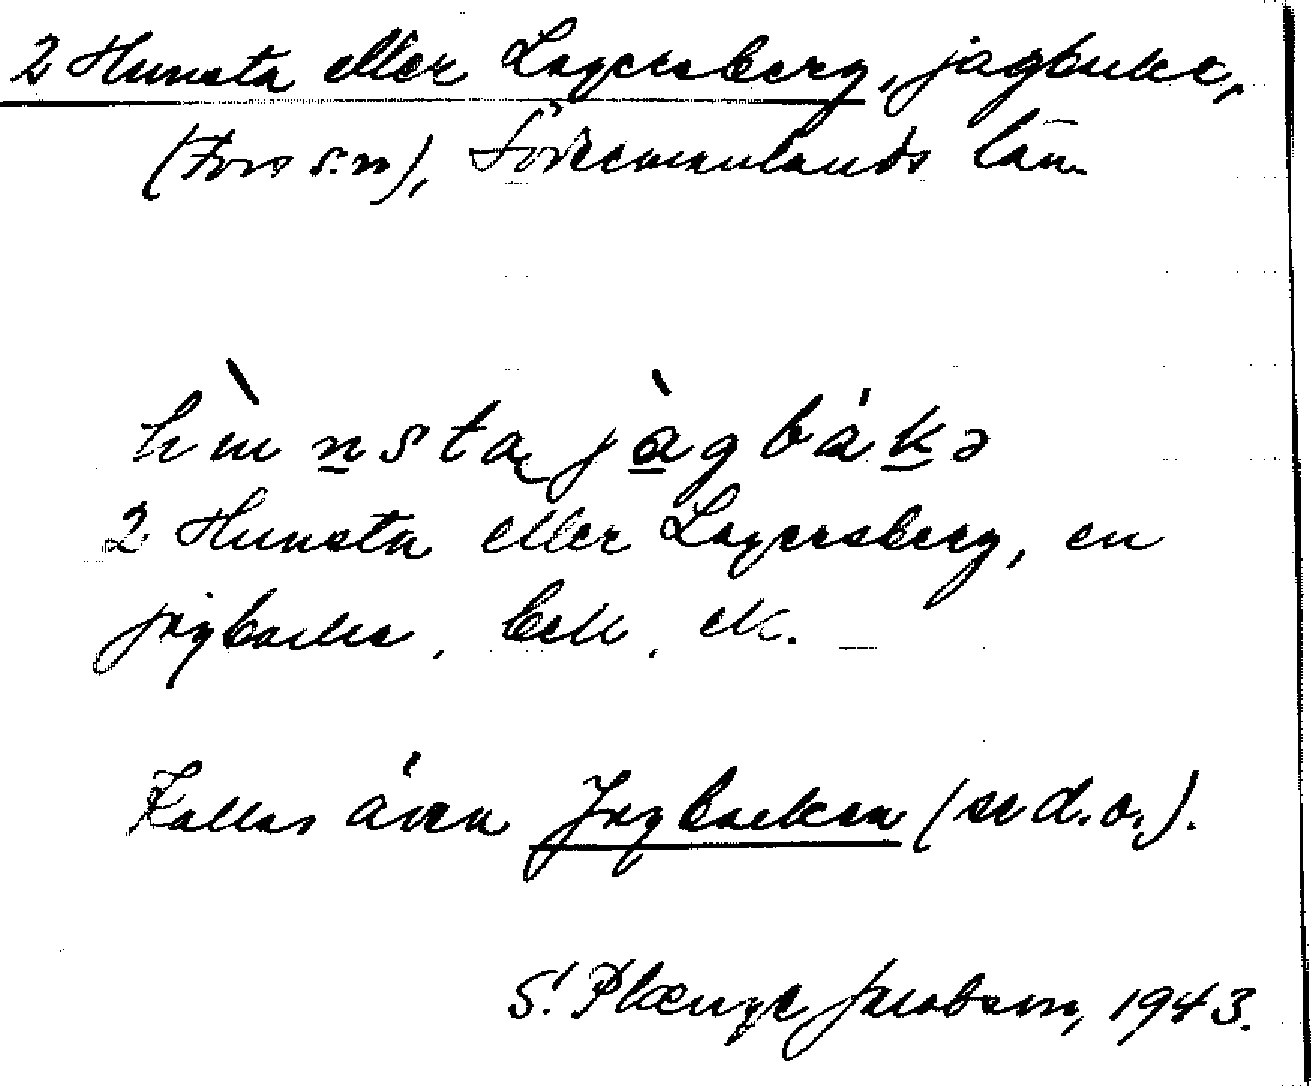 2 Hunsta eller Lagersberg, jagbacke,
(Fors s:n), Södermanlands län.
hùnsta jàgbákə
2 Hunsta eller Lagersberg, en
jagbacke, bek. ek.
Kallas även Jagbacken (se d.o.).
S. Plænge Jacobson, 1943.